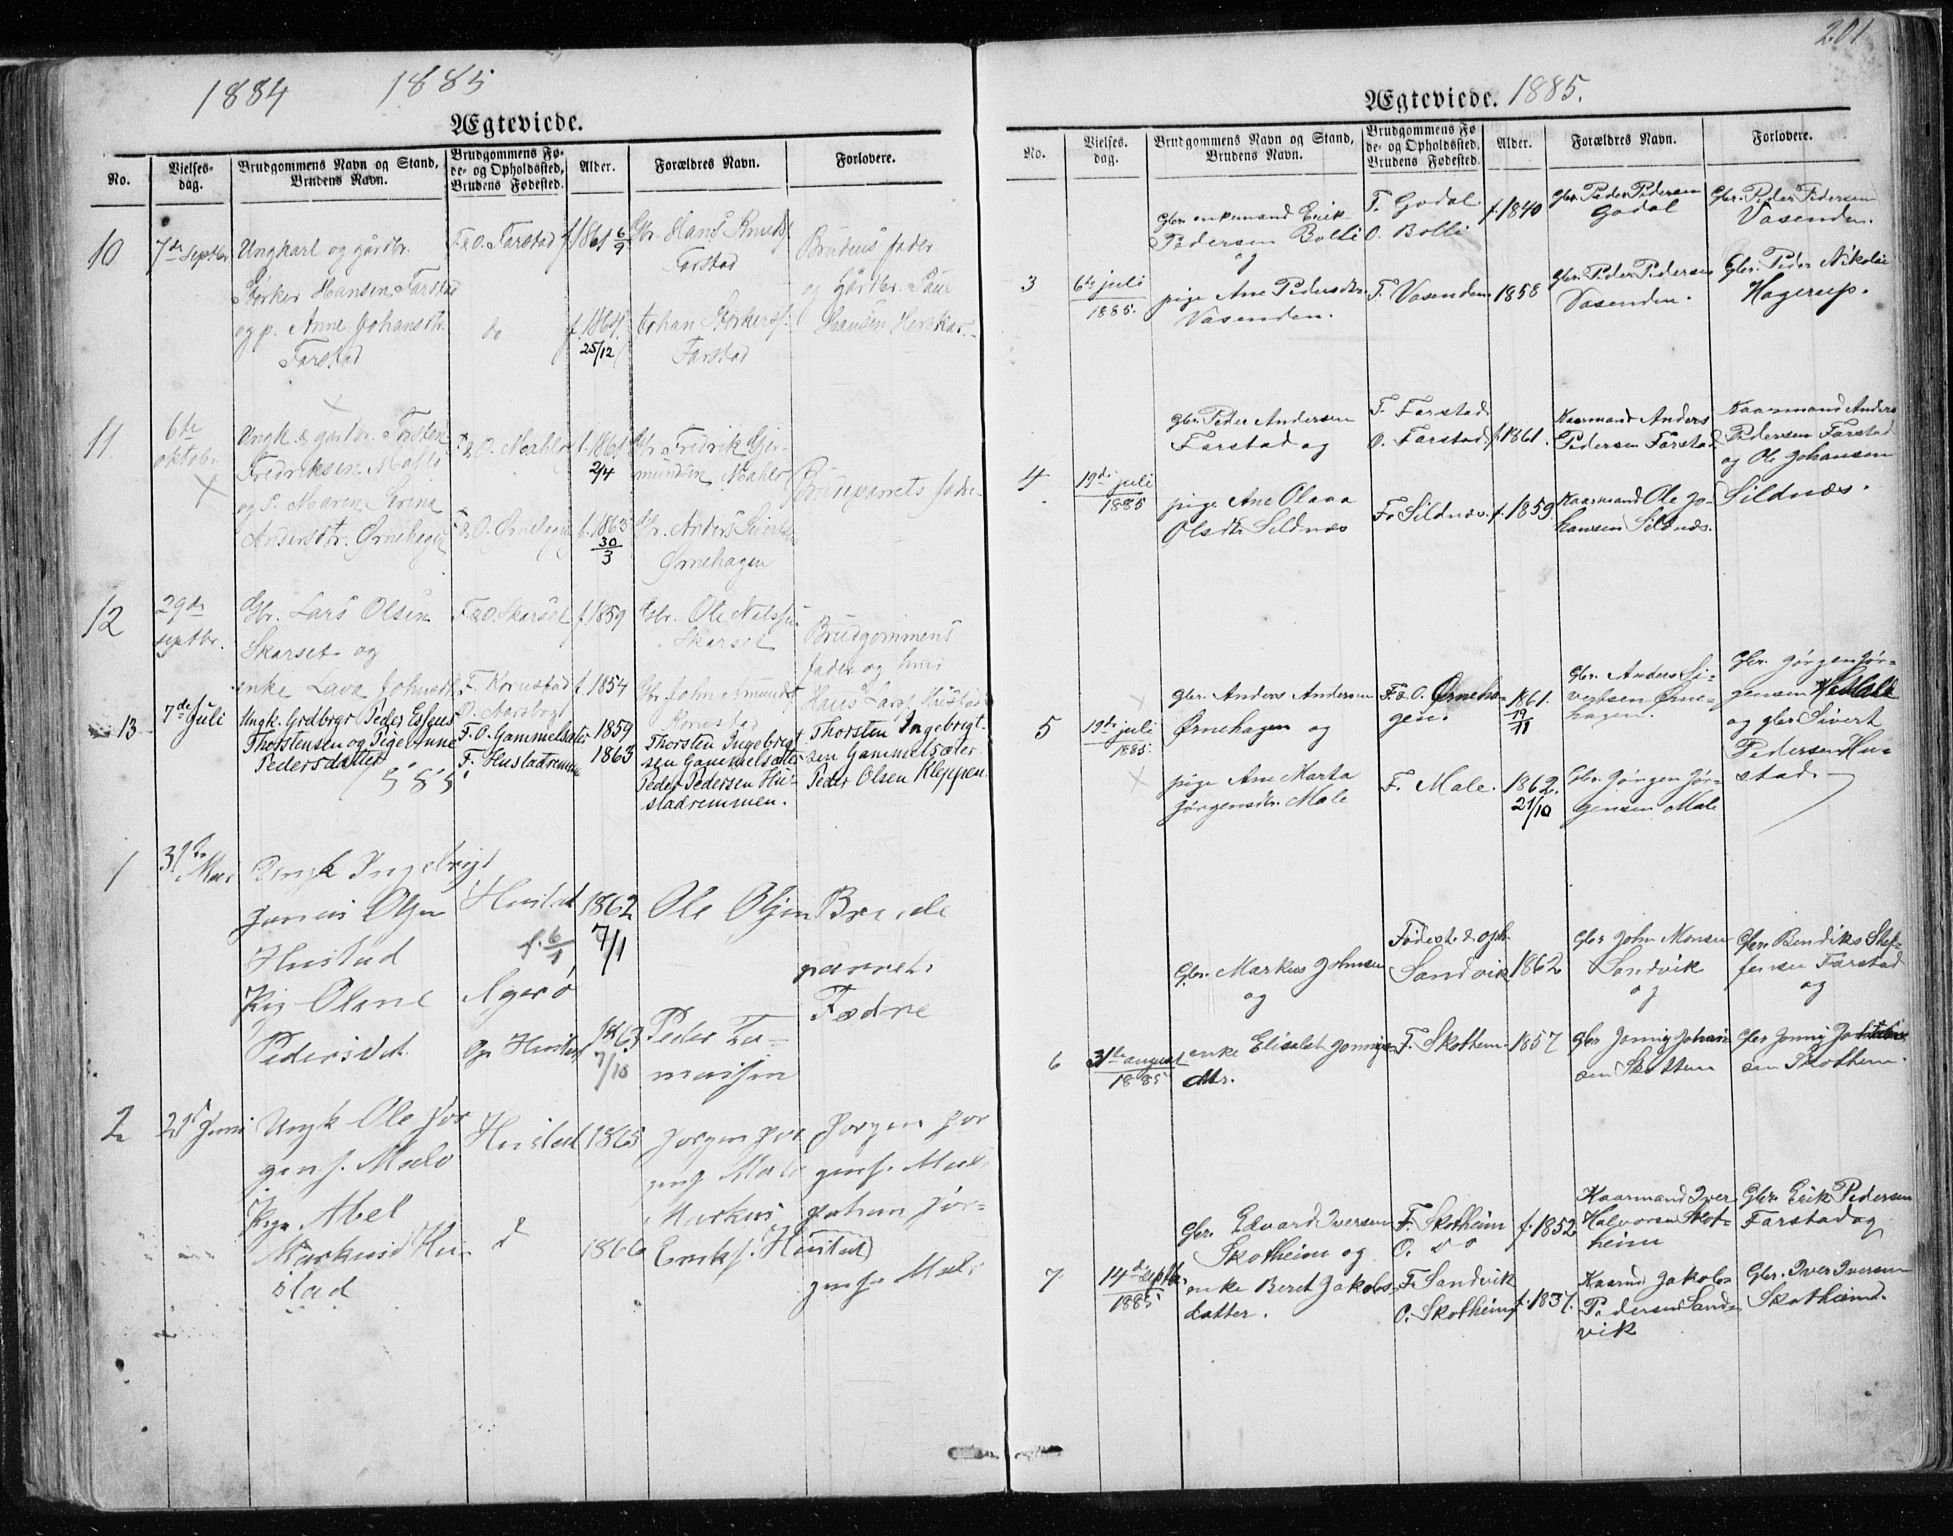 1884 1885
Ægteviede.
No.
Vielses-
dag.
Brudgommens Navn og Stand,
Brudens Navn.
Brudgommens Fø-
de- og Opholdssted,
Brudens Fødested.
Alder.
Forældres Navn.
Forlovere.
10
7de Septbr
Ungkarl og gårdbr.
Størker Hansen Farstad
og p. Anne Johansdtr.
Farstad
F&O. Farstad
do
f. 1861 6/9
f. 1864
25/12
Gbr. Hans Knuds
Farstad
Johan Størkers.
Farstad
Brudens fader
og Gårdbr.
Hansen
11
6te
oktobr.
Ungk. & gardbr. Torsten
Fredriksen Mahle
og P. Maren Serine
Andersdtr. Ørnehagen
F&O. Mahle
F&O. Ørnehagen
f. 1861
2/4
f. 1863
30
3
Gbr. Fredrik Gjer-
mundsen Mahle
Gbr. Anders Sivertsen
Ørnehagen
Brudeparrets fædre
12
29de
septbr.
Gbr. Lars Olsen
Skarset og
enke Lava Johnsdtr
F&O. Skarset
F. Kornstad
O.
f. 1859
f. 1854
Gbr. Ole Nilss.
Skarset
Gbr. John Amunds
Kornstad
Brudgommens
fader og
Hans Lars
13
7de Juli
Ungk. Grdbrgr Peder Esfeus
Thorstensen og Pige Anne
Pedersdatter
F. O. Gammelsæter
F. Hustadremmen
1859
1863
Thorsten Ingebrigt-
sen Gammelsæter
Peder Pedersen Hu-
stadremmen.
Thorsten Ingebrigt-
sen Gammelsæter
Peder Olsen Kleppen.
1885
1
31te Mai
Ungk Ingebrigt
Olsen
Hustad
Pig Olene
Pedersdt.
Hustad
f. 6/1
Agerø
Op Hustad
1862
7/1
1863
7/10
Ole Olsen
Peder To-
massen
Brude
parrets
Fædre
2
21d Juni
Ungk Ole Jør
gens. Male
Pige Abel
Markusd Hu-
stad
Hustad
d
1865
1866
Jørgen Jør
gens Male
Markus
Eriks. Hustad
Jørgen Jør
gens. Male
Johan Jør-
gens. Male
201
Ægteviede. 1885.
No.
Vielses-
dag.
Brudgommens Navn og Stand,
Brudens Navn.
Brudgommens Fø-
de- og Opholdssted,
Brudens Fødested.
Alder.
Forældres Navn.
Forlovere.
3
6te juli
1885.
Gbr. enkemand Erik
Pedersen Bolli
og
pige Ane Pedersdtr.
Vasenden.
F. Godal.
O. Bolli
F. Vasenden
f. 1840
1858
Gbr. Peder Pedersen
Godal
Gbr. Peder Pedersen
Vasenden.
Gbr. Peder Pedersen
Vasenden.
Gbr. Peder Nikolai
Hagerup.
4
19de juli
1885
gbr. Peder Andersen
Farstad og
pige Ane Olava
Olsdtr Sildnæs
F. Farstad
O. Farstad
F. Sildnæs.
f. 1861.
f. 1859.
Kaarmand Anders
Pedersen Farstad
Kaarmand Ole Jo-
hansen Sildnæs.
Kaarmand Anders
Pedersen Farstad
og Ole Johansen
Sildnæs.
5
19de juli
1885.
gbr. Anders Andersen
Ørnehagen og
pige Ane Marta
Jørgensdtr. Male
F. & O. Ørneha-
gen.
F. Male.
1861.
19
11
1862.
21/10
gbr. Anders Si-
vertsen Ørne-
hagen.
Gbr. Jørgen Jør-
gensen Male
Gbr. Jørgen Jør-
gensen Male
og gbr Sivert
Pedersen Hu-
stad.
6
31te august
1885
Gbr. Markus Johnsen
og
enke Elisabet Jonnys-
dtr.
Fødest. & oph.
Sandvik
F. Skothem.
1862
1857
Gbr John Monsen
Sandvik
og
Gbr Jonny Johan-
sen Skothem
Gbr. Bendiks Stef-
fensen Farstad
og
Gbr Jonny Johan-
sen Skothem.
7
14de septbr.
1885.
Gbr. Edvard Iversen
Skotheim og
enke Beret Jakobs-
datter.
F. Skotheim
O. do
F. Sandvik
O. Skotheim
f. 1852
f. 1837.
Kaarmand Iver
Halvorsen Skot-
heim
Kaarmd Jakob
Pedersen Sand-
vik
Gbr. Erik Pedersen
Farstad og
Gbr. Iver Iversen
Skotheim.